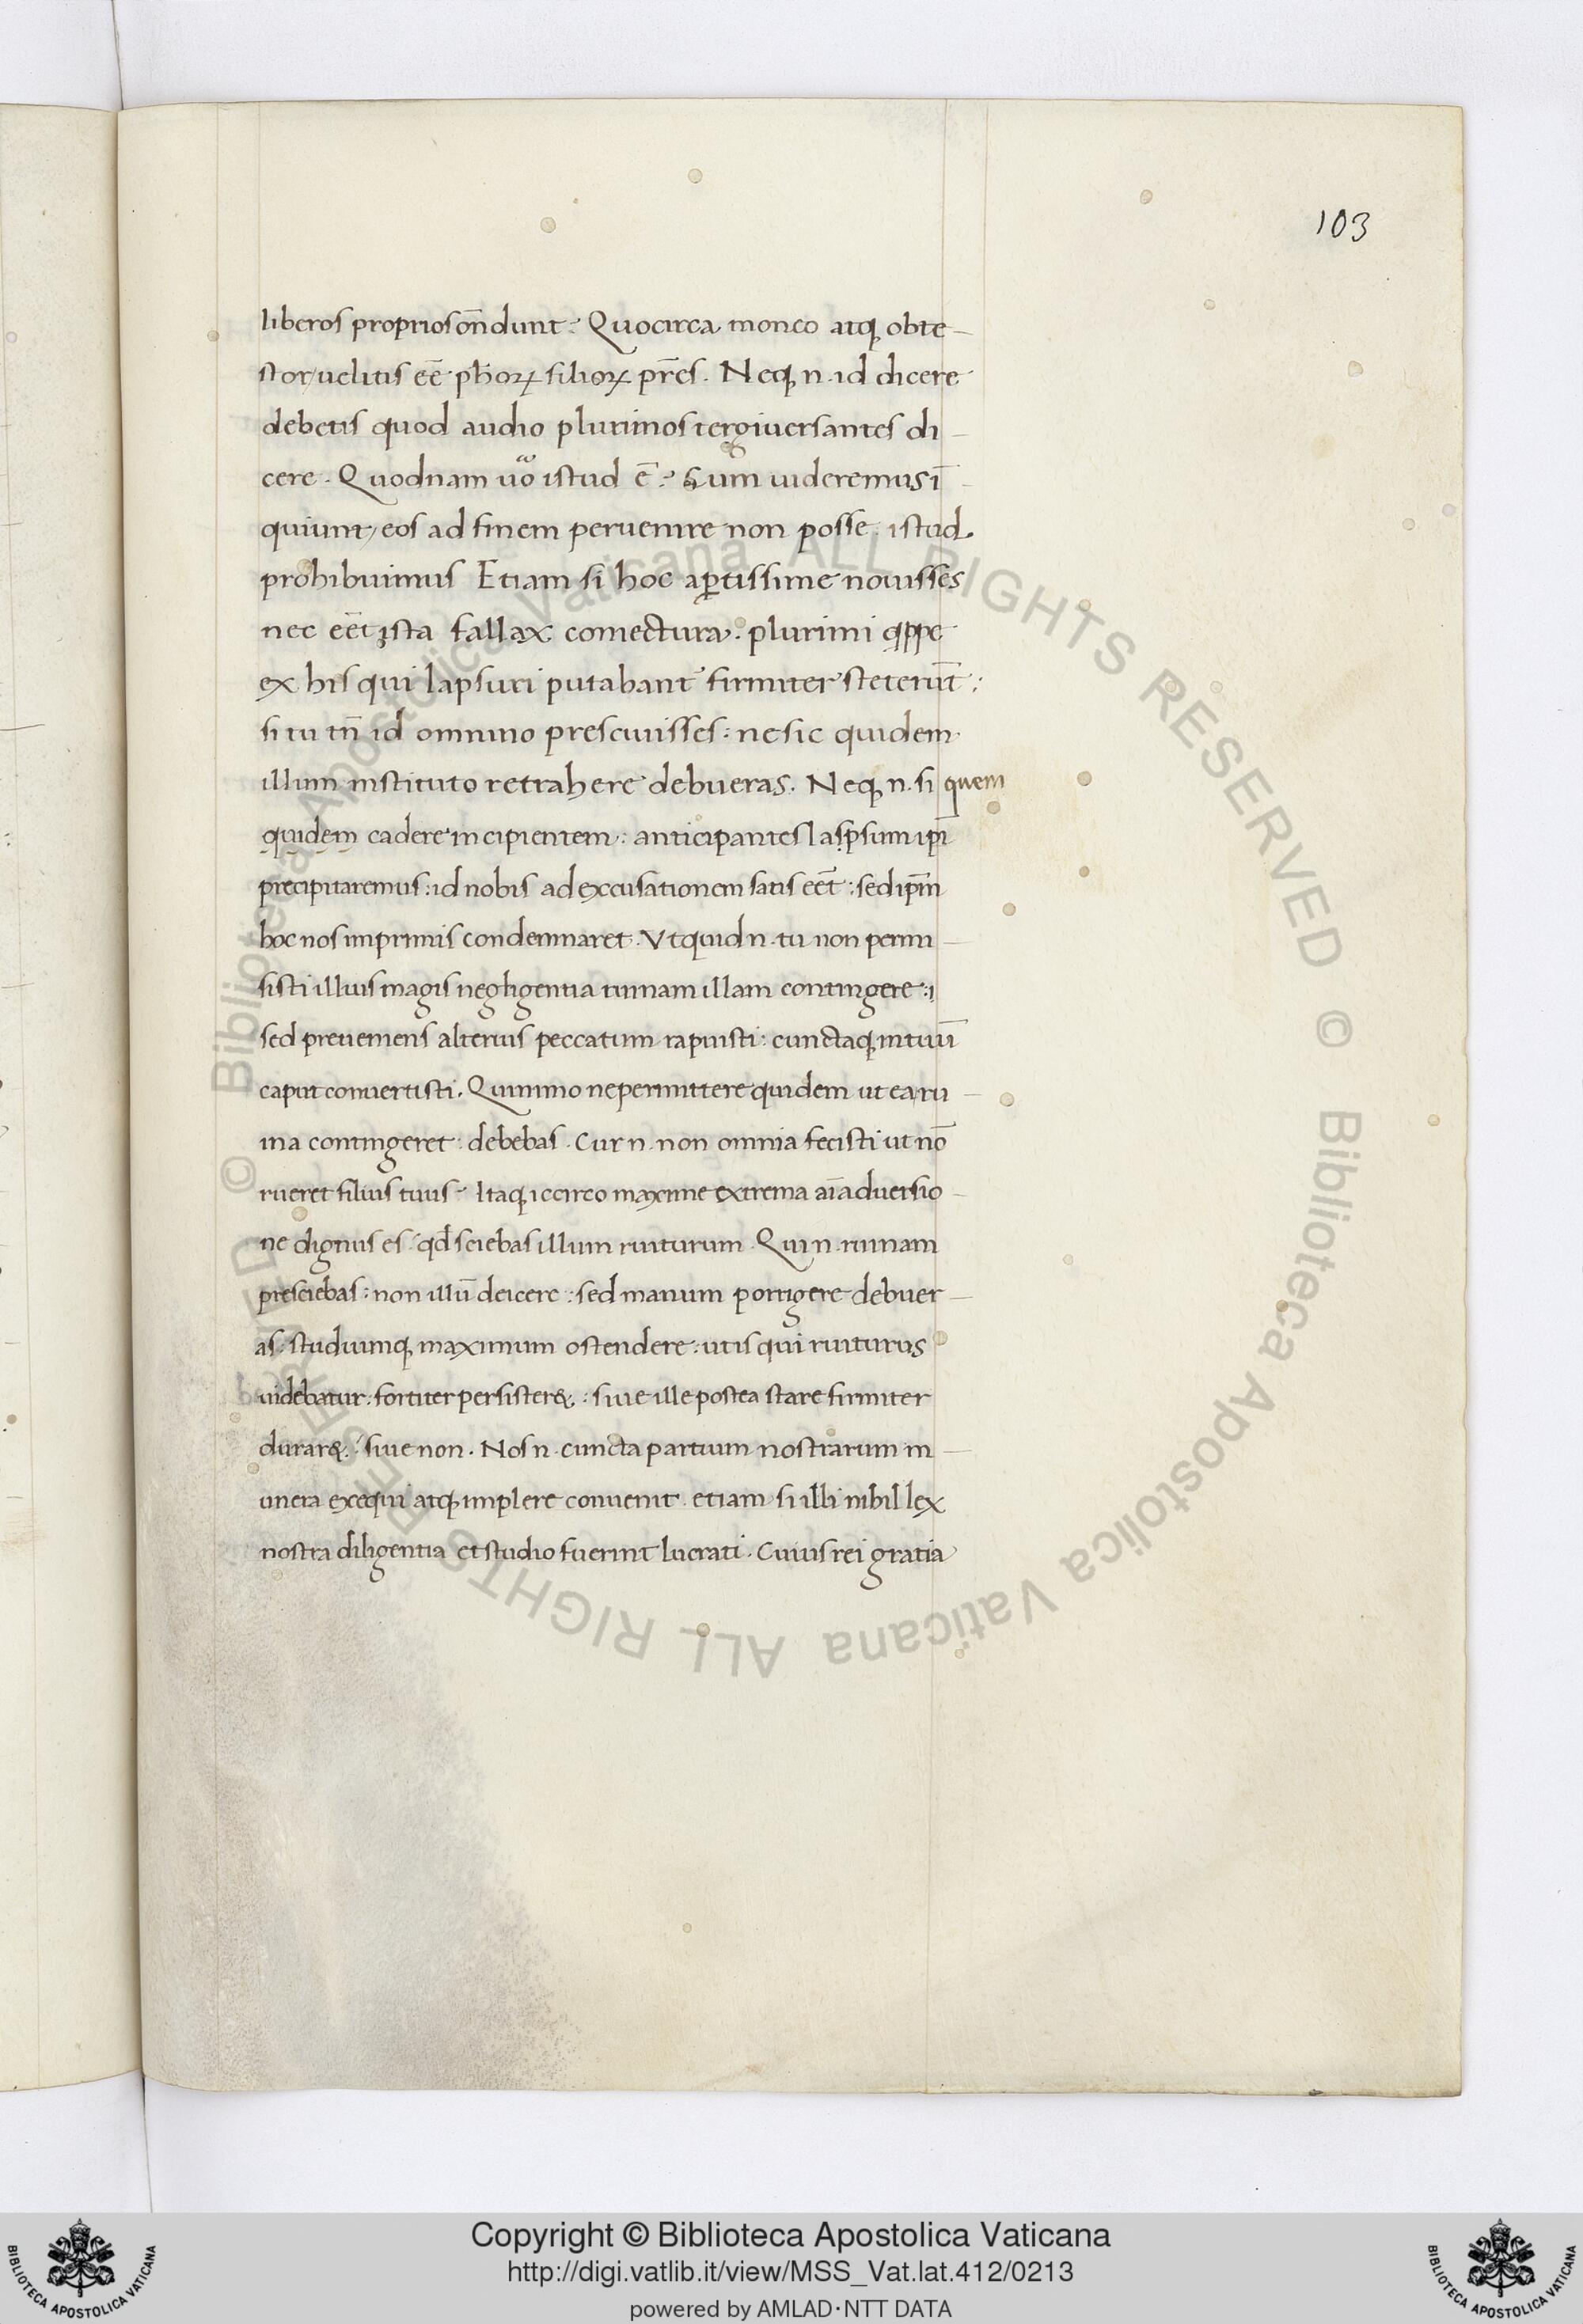 103
liberos proprios on̄dunt? Quocirca moneo atq; obte-
stor/uelitis eē pboꝝ filioꝝ pr̄es. Neq; n. id dicere
debetis quod audio plurimos tergiuersantes di-
cere. Quodnam uo istud ē? Cum uideremus ī-
quiunt/eos ad finem peruenire non posse. istud
prohibuimus Etiam si hoc aꝑtissime nouisses
nec eēt ista fallax coniectura. plurimi qppe
ex his qui lapsuri putabant̄ firmiter steterūt:
si tu tn̄ id omnino presciuisses: ne sic quidem
illum instituto retrahere debueras. Neq; n. si quem
quidem cadere incipientem: anticipantes laspsum ipī
precipitaremus: id nobis ad excusationem satis eēt: sed ipm̄
hoc nos imprimis condemnaret. Vt quid n. tu non permi-
sisti illius magis negligentia ruinam illam contingere:
sed preueniens alterius peccatum rapuisti: cunctaq; in tuū
caput conuertisti. Quinimo ne permittere quidem ut ea ru-
ina contingeret: debebas. Cur n. non omnia fecisti ut nō
rueret filius tuus? Itaq; iccirco maxime extrema aīaduersio-
ne dignus es: qd sciebas illum ruiturum. Qui n. ruinam
presciebas: non illū deicere: sed manum porrigere debuer-
as: studiumq; maximum ostendere: ut is qui ruiturus
uidebatur: fortiter persister&: siue ille postea stare firmiter
durar&: siue non. Nos n. cuncta partium nostrarum m-
unera exequi atq; implere conuenit. etiam si illi nihil lex
nostra diligentia et studio fuerint lucrati. Cuius rei gratia
© Biblioteca Apostolica Vaticana ALL RIGHTS RESERVED © Biblioteca Apostolica Vaticana ALL RIGHTS RESERVED
Copyright © Biblioteca Apostolica Vaticana
http://digi.vatlib.it/view/MSS_Vat.lat.412/0213
powered by AMLAD·NTT DATA
BIBLIOTECA APOSTOLICA VATICANA
BIBLIOTECA APOSTOLICA VATICANA